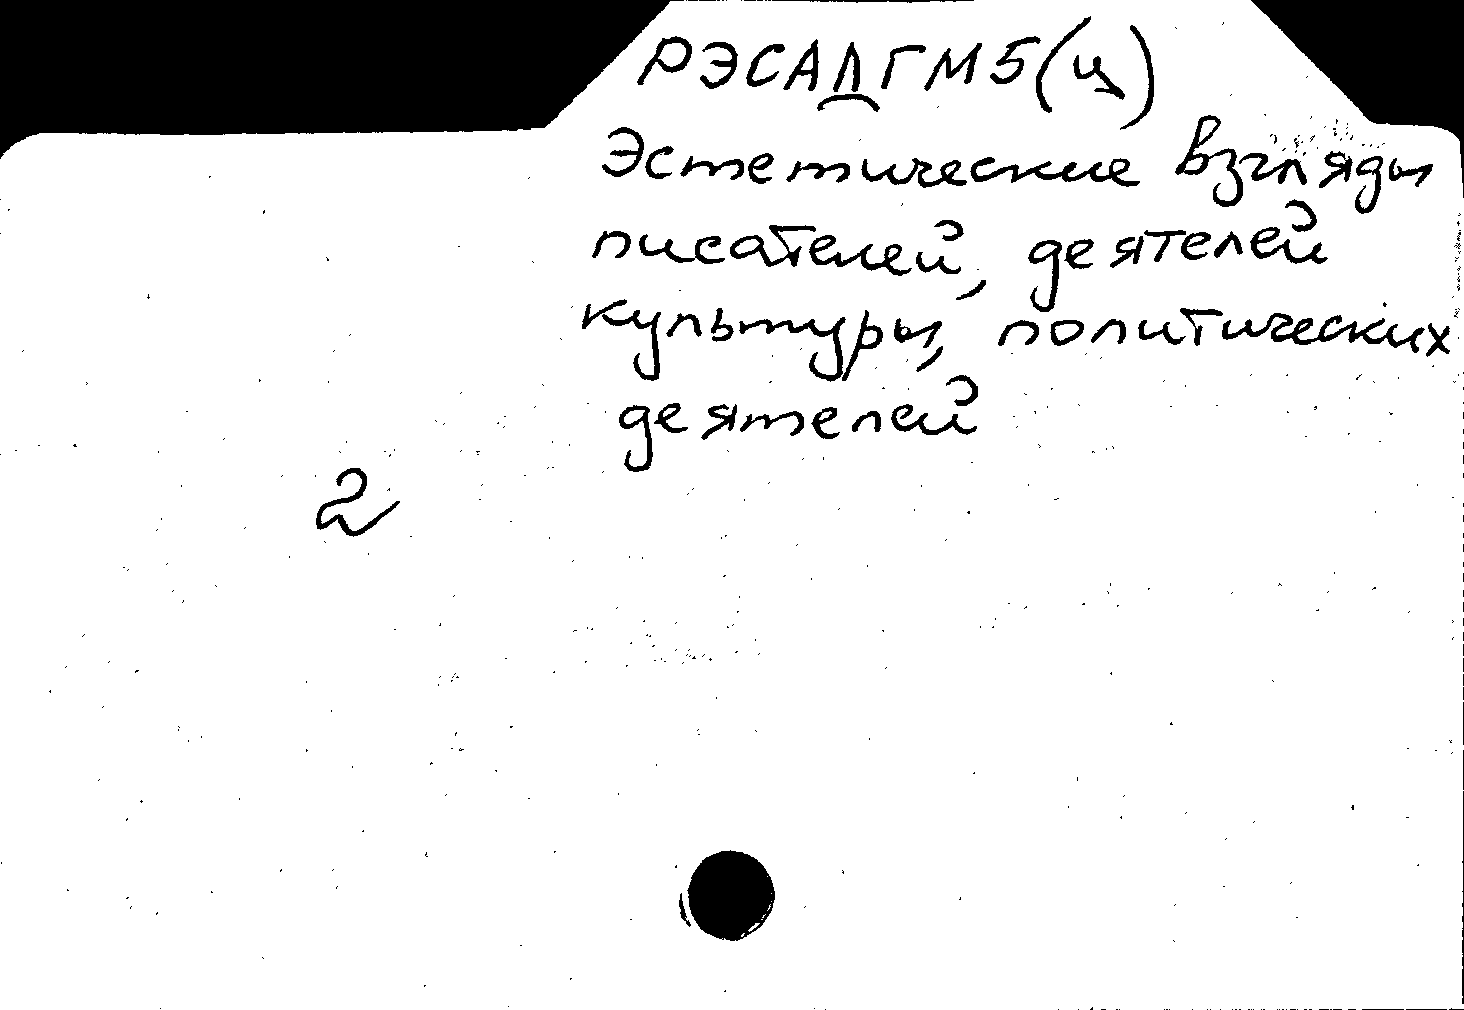 РЭСАЛГМ5(ц)
Эстетические взгляды
писателей, деятелей
культуры, политических
деятелей
2